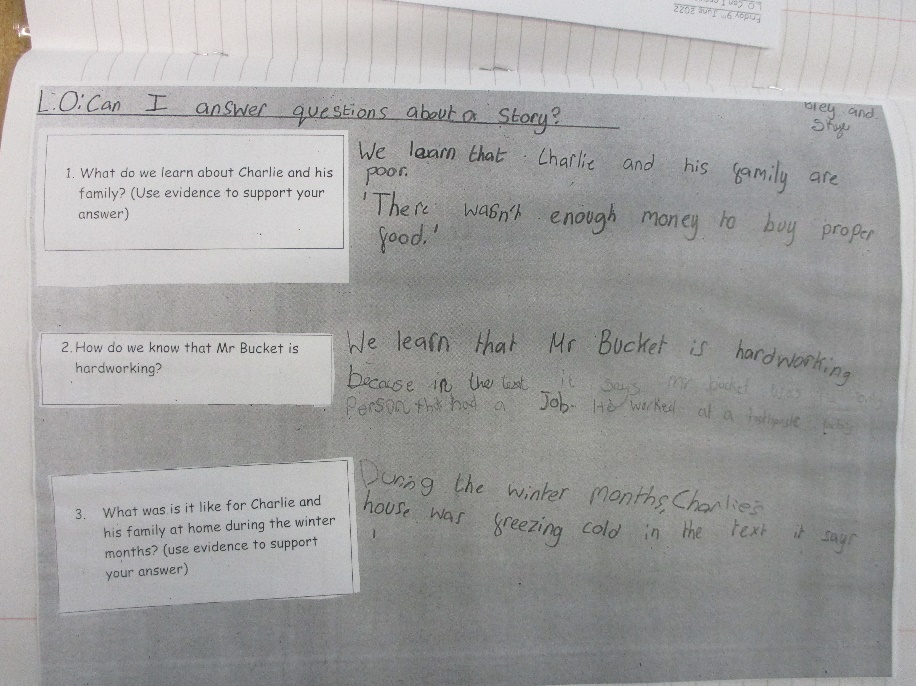 Friday 9th June 2022
L.O: Can I answer questions about a Story?
and
Skye
1. What do we learn about Charlie and his
family? (Use evidence to support your
answer)
We learn that Charlie and his family are
poor.
'There wasn't enough money to buy proper
food.'
2. How do we know that Mr Bucket is
hardworking?
We learn that Mr Bucket is hardworking
because in the text it says Mr bucket was only
Person that had a Job. He worked at a toothpaste
3. What was is it like for Charlie and
his family at home during the winter
months? (use evidence to support
your answer)
During the winter months, Charlie's
house was freezing cold in the text it says
'